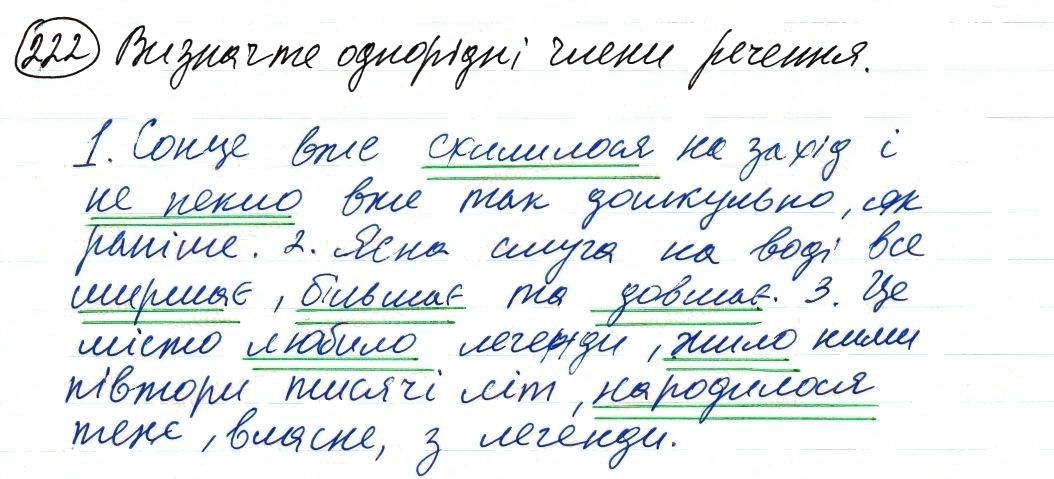 222 Визначте однорідні члени речення.
1. Сонце вже схилилося на захід і
не пекло вже так дошкульно, як
раніше. 2. Ясна смуга на воді все
ширшає, більшає та довшає. 3. Це
місто любило легенди, жило ними
півтори тисячі літ, народилося
теж, власне, з легенди.